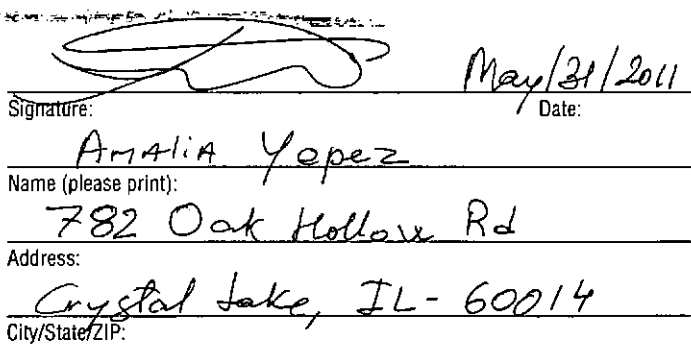 May/31/2011
Signature: Date:
Amalia Yepez
Name (please print):
782 Oak Hollow Rd
Address:
Crystal Lake, IL- 60014
City/State/ZIP: